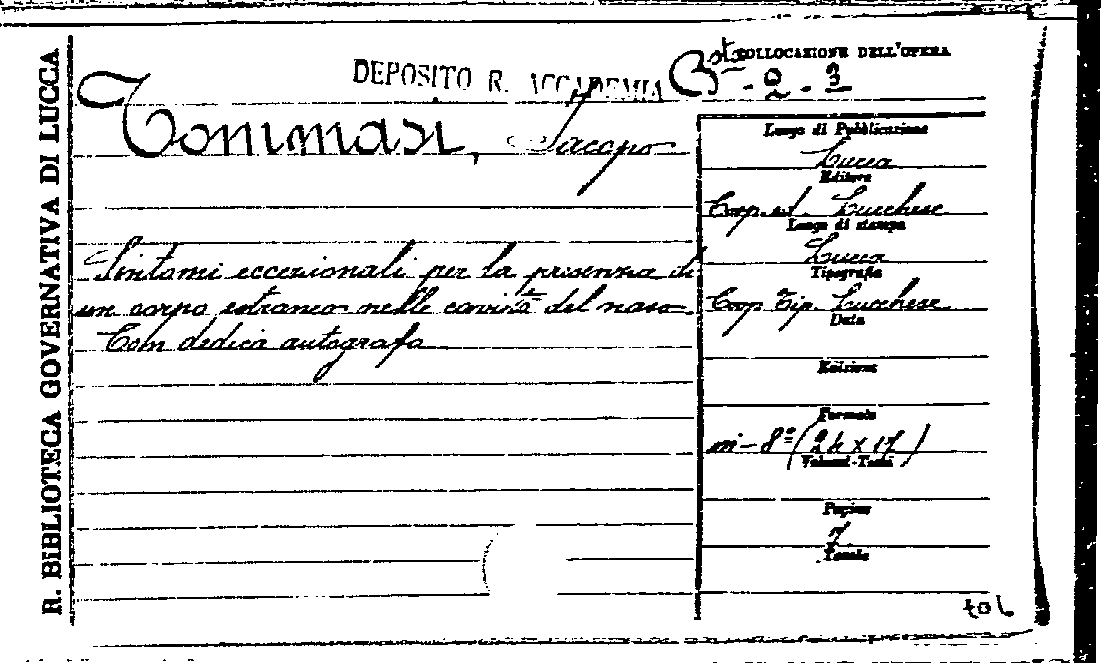 R. BIBLIOTECA GOVERNATIVA DI LUCCA
DEPOSITO R. ACCADEMIA
COLLOCAZIONE DELL'OPERA
Bst - 2 - 3
Tommasi, Jacopo
Sintomi eccezionali per la presenza di
un corpo estraneo nelle cavità del naso.
Con dedica autografa
Luogo di Pubblicazione
Lucca
Editore
Coop. ed. Lucchese
Luogo di stampa
Lucca
Tipografia
Coop. Tip. Lucchese
Data
Edizione
Formato
in-8º (24 x 17)
Volumi-Tomi
Pagine
7.
Tavole